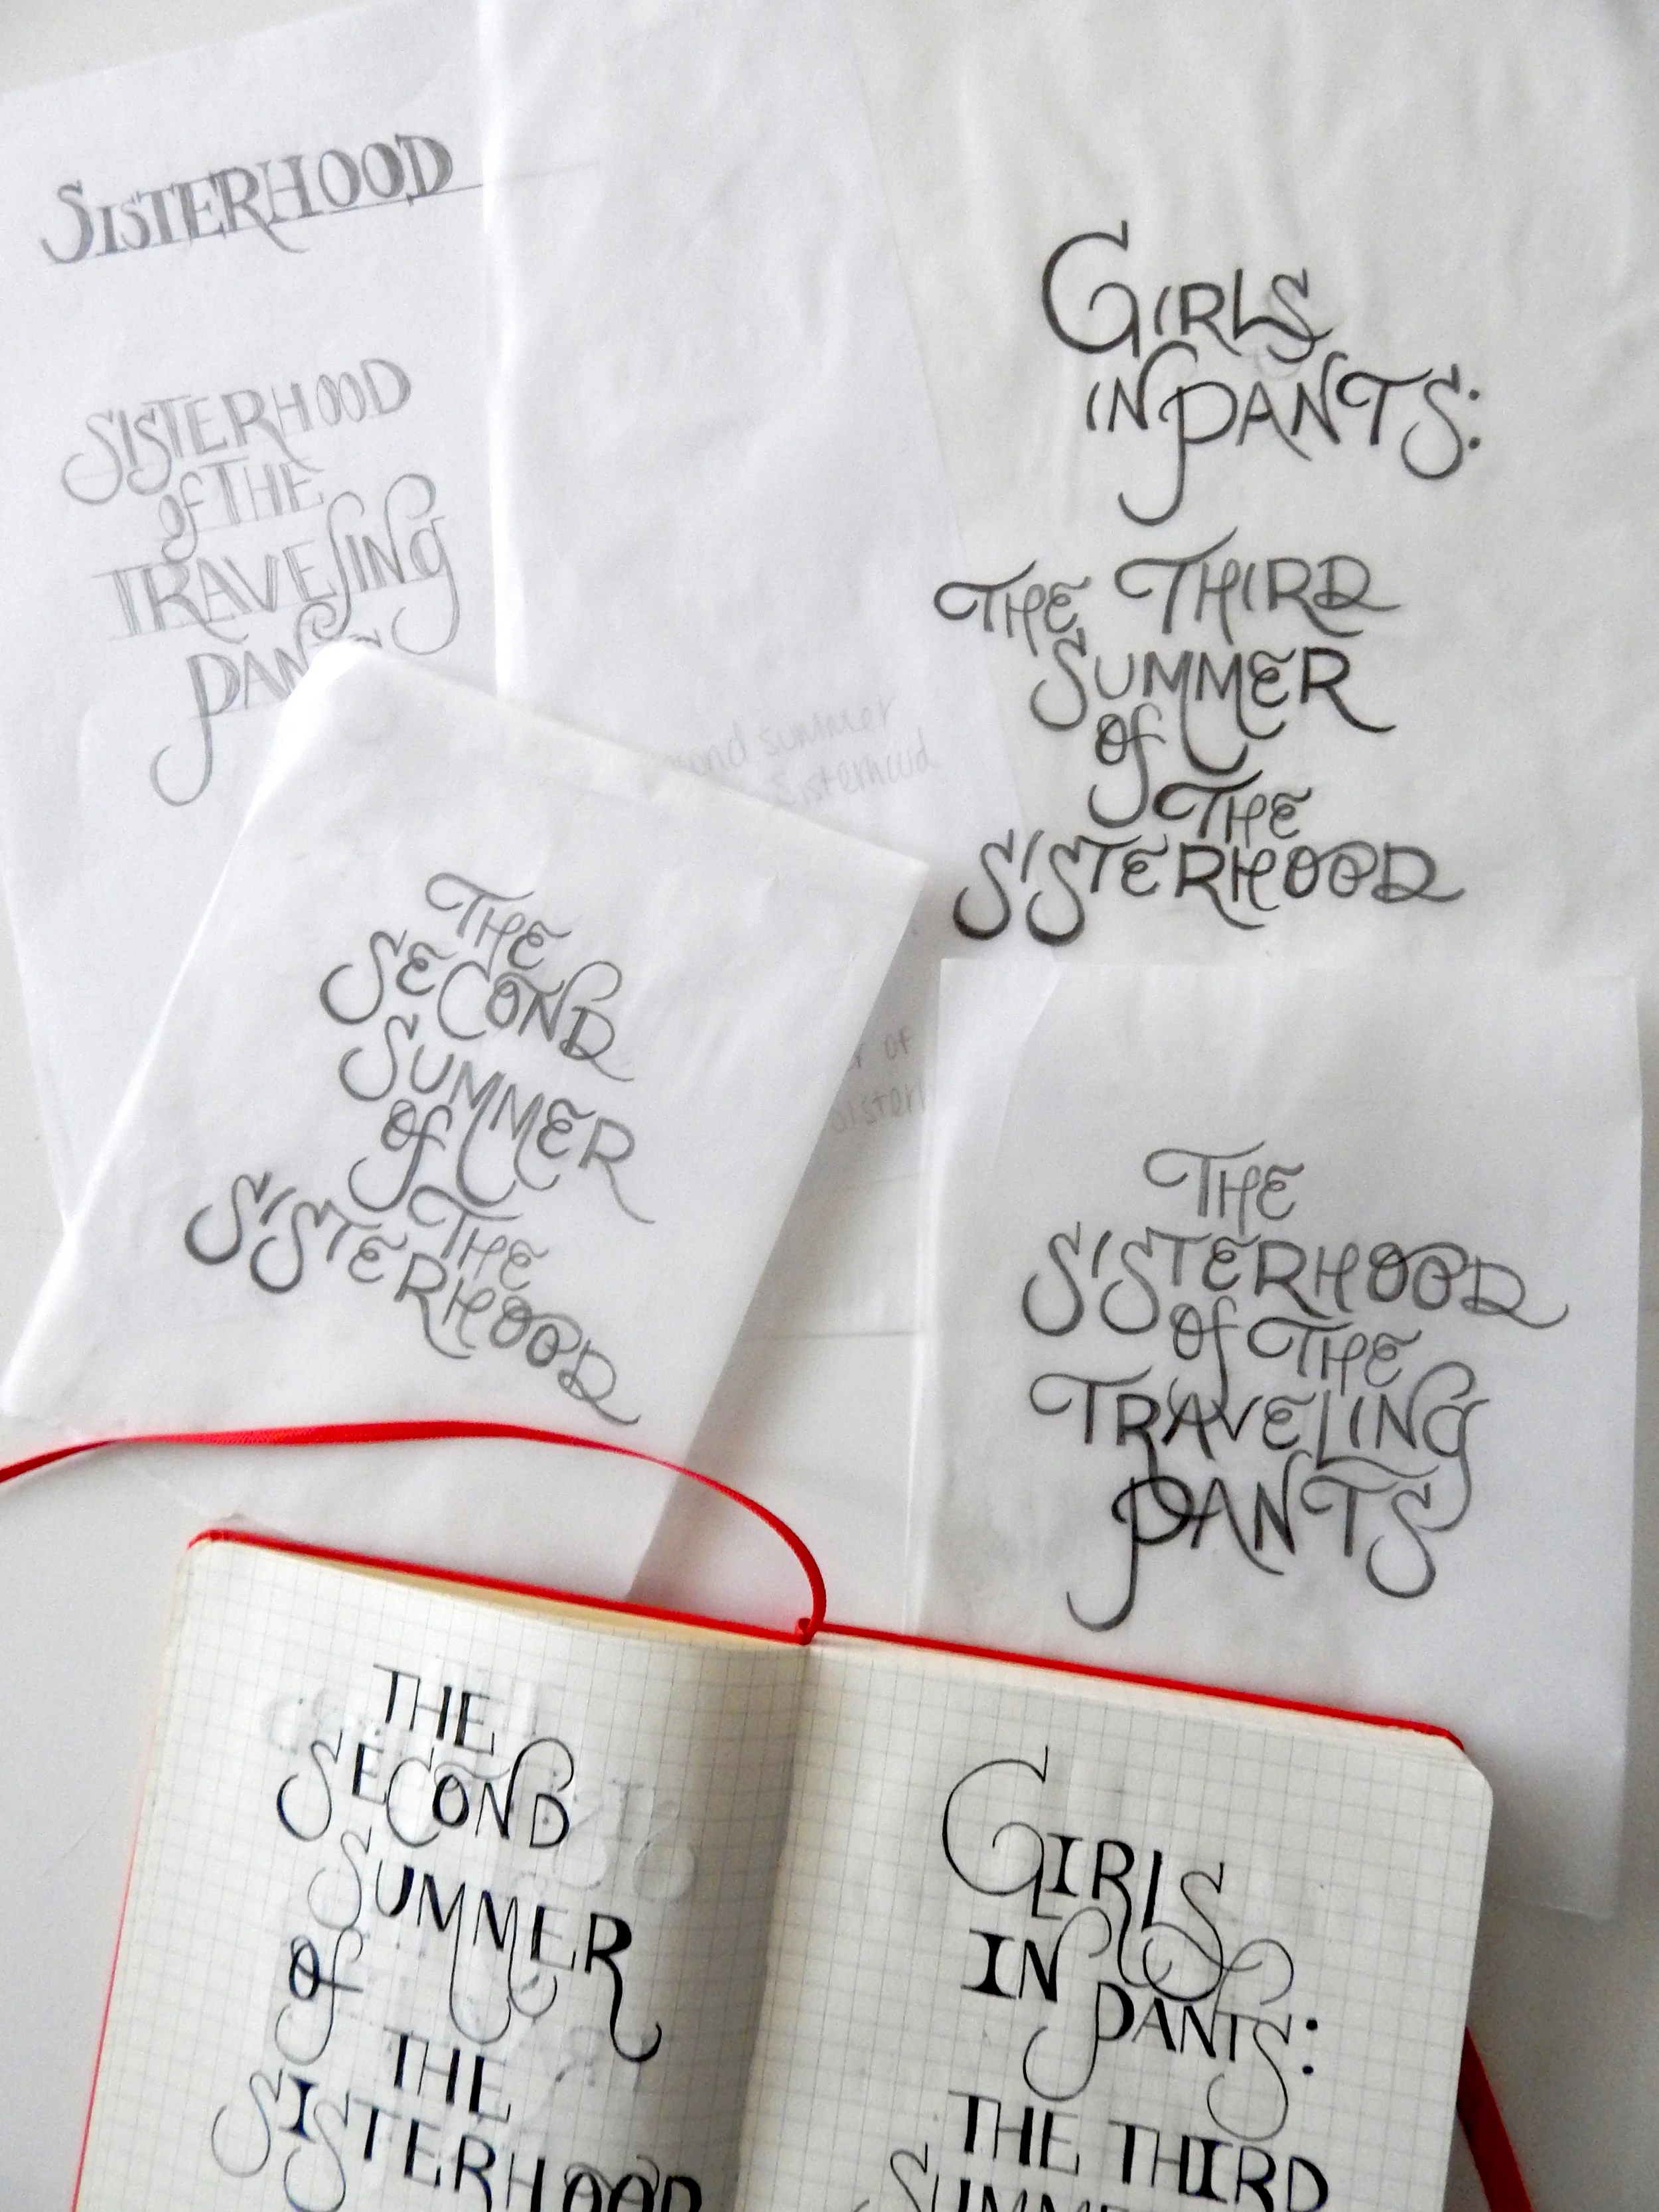 SISTERHOOD
SISTERHOOD
of THE
TRAVELING
PANTS
GIRLS
IN PANTS:
THE THIRD
SUMMER
of
THE
SISTERHOOD
summer
Sisterhood
of
THE
SECOND
SUMMER
of
THE
SISTERHOOD
THE
SISTERHOOD
of THE
TRAVELING
PANTS
THE
SECOND
SUMMER
of
THE
SISTERHOOD
GIRLS
IN
PANTS:
THE THIRD
SUMMER